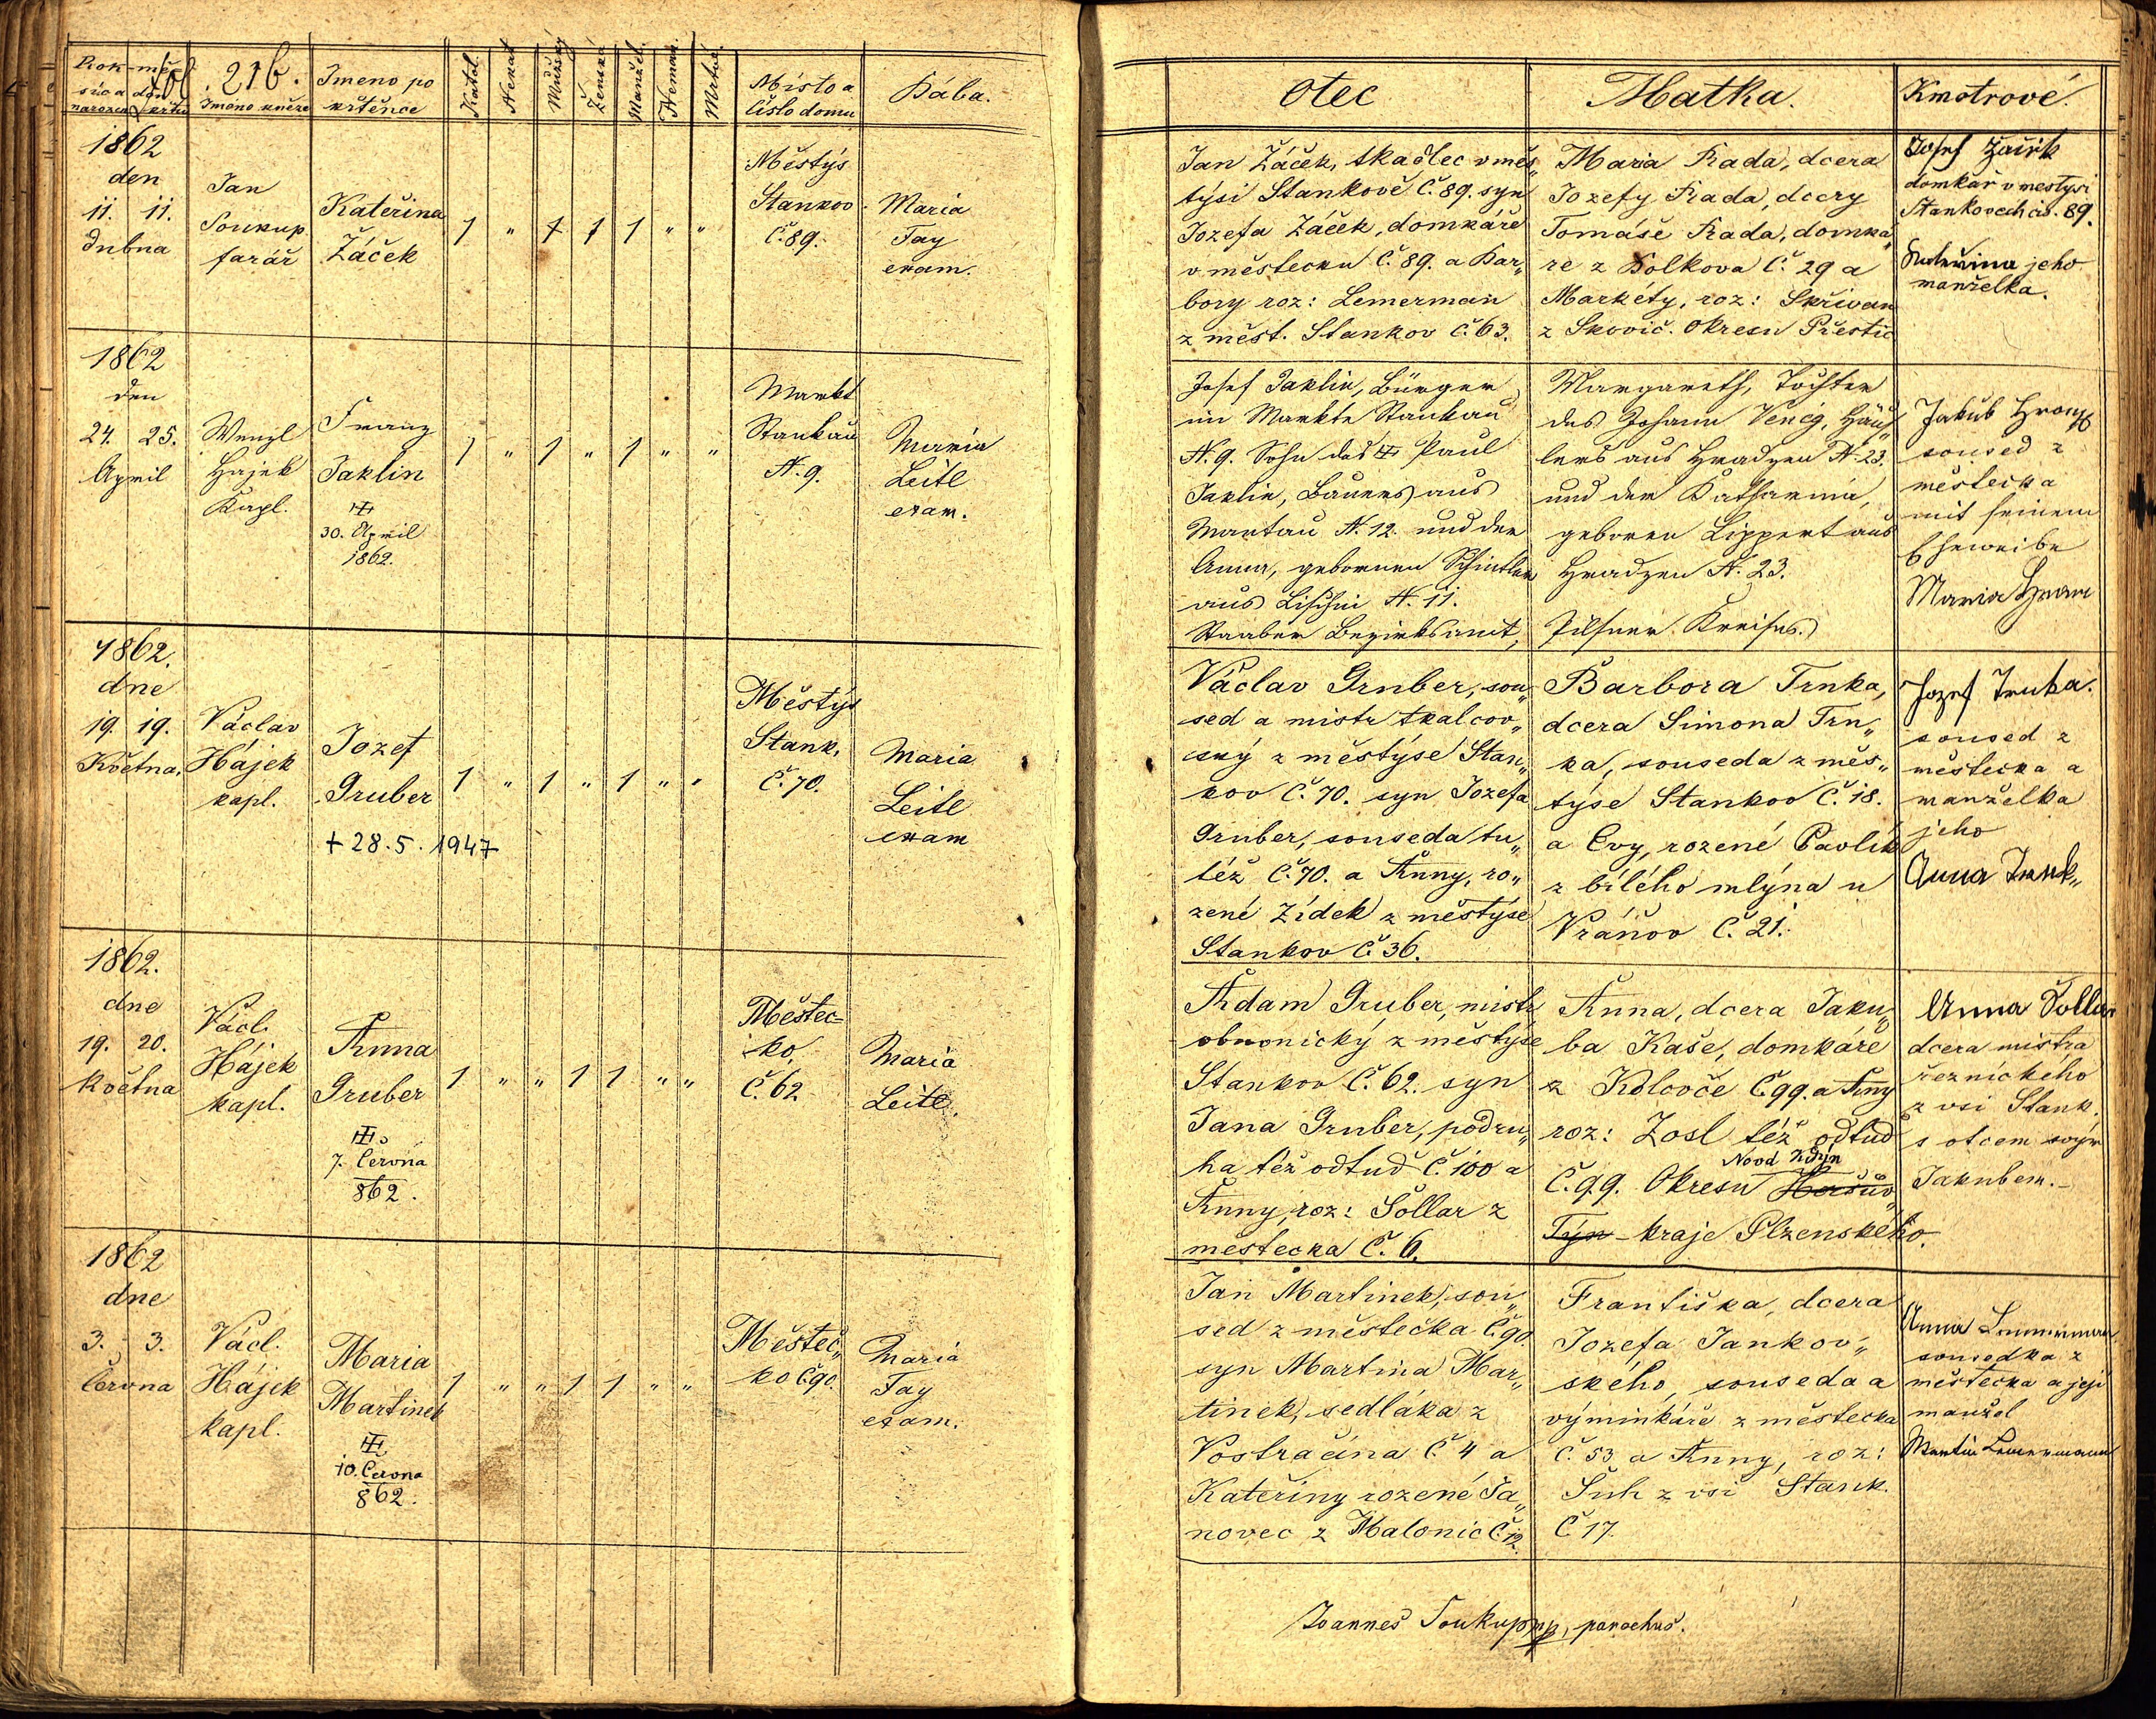 Rok - mě-
síc a den
narozen křtu
fol. 216.
Jmeno kněze
Jmeno po
křtěnce
Katol.
Nekat
Mužský
Ženská
Manžel.
Neman.
Mrtvé.
Místo a
Číslo domu
Bába.
1862
den
11. 11.
Dubna
Jan
Soukup
farář
Kateřina
Žáček
1 " 1 1 1 " "
Městýs
Stankov
Č. 89.
Maria
Tay
exam.
1862
den
24. 25.
April
Wenzl
Hajek
Kapl.
Franz
Jaklin
30. April
1862.
1 " 1 " 1 " "
Markt
Stankau
N. 9.
Maria
Leitl
exam.
1862.
dne
19. 19.
Května.
Václav
Hájek
kapl.
Jozef
Gruber
+ 28. 5. 1947
1 " 1 " 1 " "
Městýs
Stank.
Č. 70.
Maria
Leitl
exam
1862.
dne
19. 20.
Května
Václ.
Hájek
kapl.
Anna
Gruber
7. Června
862.
1 " " 1 1 " "
Městeč=
ko
Č. 62
Maria
Leitl.
1862
dne
3. 3.
Června
Václ.
Hájek
kapl.
Maria
Martinek
10. Června
862.
1 " " 1 1 " "
Městeč„
ko Č 90.
Maria
Tay
exam.
Otec
Matka.
Kmotrové.
Jan Žáček, tkadlec v měs„
týsi Stankově Č. 89. syn
Jozefa Žáček, domkáře
v městečku Č. 89. a Bar„
bory roz: Lemerman
z měst. Stankov Č. 63.
Maria Rada, dcera
Jozefy Rada, dcery
Tomáše Rada, domká„
ře z Holkova Č. 29 a
Markéty, roz: Skřivan
z Skovič. Okresu Přestic
Josef Žáček
domkař v mestysi
Stankovech čis. 89.
Kateřina jeho
manželka.
Josef Jaklin, Bürger
im Markte Stankau
N. 9. Sohn des Paul
Jaklin, Bauers aus
Mantau N. 12. und der
Anna, gebornen Schintler
aus Lischin N. 11.
Staaber Bezirksamt,
Margareth, Tochter
des Johann Venig, Häus„
lers aus Hradzen N. 23.
und der Katharina,
geboren Lippert aus
Hradzen N. 23.
Pilsner Kreises.
Jakub
soused z
městečka
mit seinem
Eheweibe
Maria
Václav Gruber, sou„
sed a mistr tkalcov„
ský z městýse Stan„
kov Č. 70. syn Jozefa
Gruber, souseda tu„
též Č. 70. a Anny, ro„
zené Zídek z městýse
Stankov Č 36.
Barbora Trnka,
dcera Simona Trn„
ka, souseda z měs„
týse Stankov Č. 18.
a Evy, rozené Pavlík
z bílého mlýna u
Vráňov Č. 21.
Jozef Trnka.
soused z
městečka a
manželka
jeho
Anna Trnk„
Adam Gruber, mistr
obuvnický z městýse
Stankov Č. 62. syn
Jana Gruber, podru„
ha též odtud Č. 100 a
Anny, roz: Šollar z
městečka Č. 6.
Anna, dcera Jaku„
ba Kaše, domkáře
z Kdlovče Č 99. a Any
roz: Zosl též odtud
Č. 99. Okresu Horšův
Nový Kdyn
Týn - kraje Plzenského.
Anna Šollar
dcera mistra
řeznického
z vsi Stank.
s otcem svým
Jakubem. -
Jan Martinek, sou„
sed z městečka Č 90.
syn Martina Mar„
tinek, sedláka z
Vostračína Č. 4 a
Kateřiny rozené Ja„
novec z Malonic Č 12.
Františka, dcera
Jozefa Jankov„
ského, souseda a
výminkáře z městečka
Č. 53 a Anny, roz:
Suh z vsi Stank.
Č 17.
Anna Lemmerman
sousedka z
městečka a její
manžel
Martin Lemermann
Joannes Soukup mp, parochus.